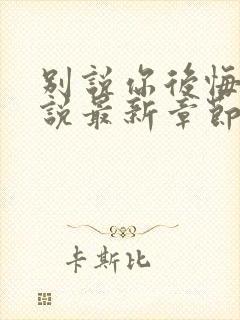 别說你後悔
說最新章節
卡斯比